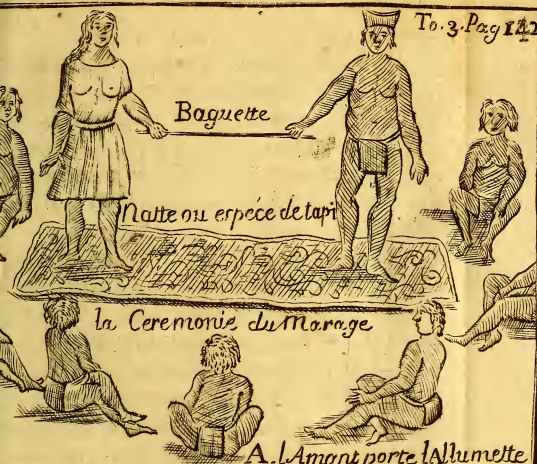 To.3.Pag 142
Baguette
Natte ou espéce de tapi
la Ceremonie du Marage
A. l'Amant porte lAllumette